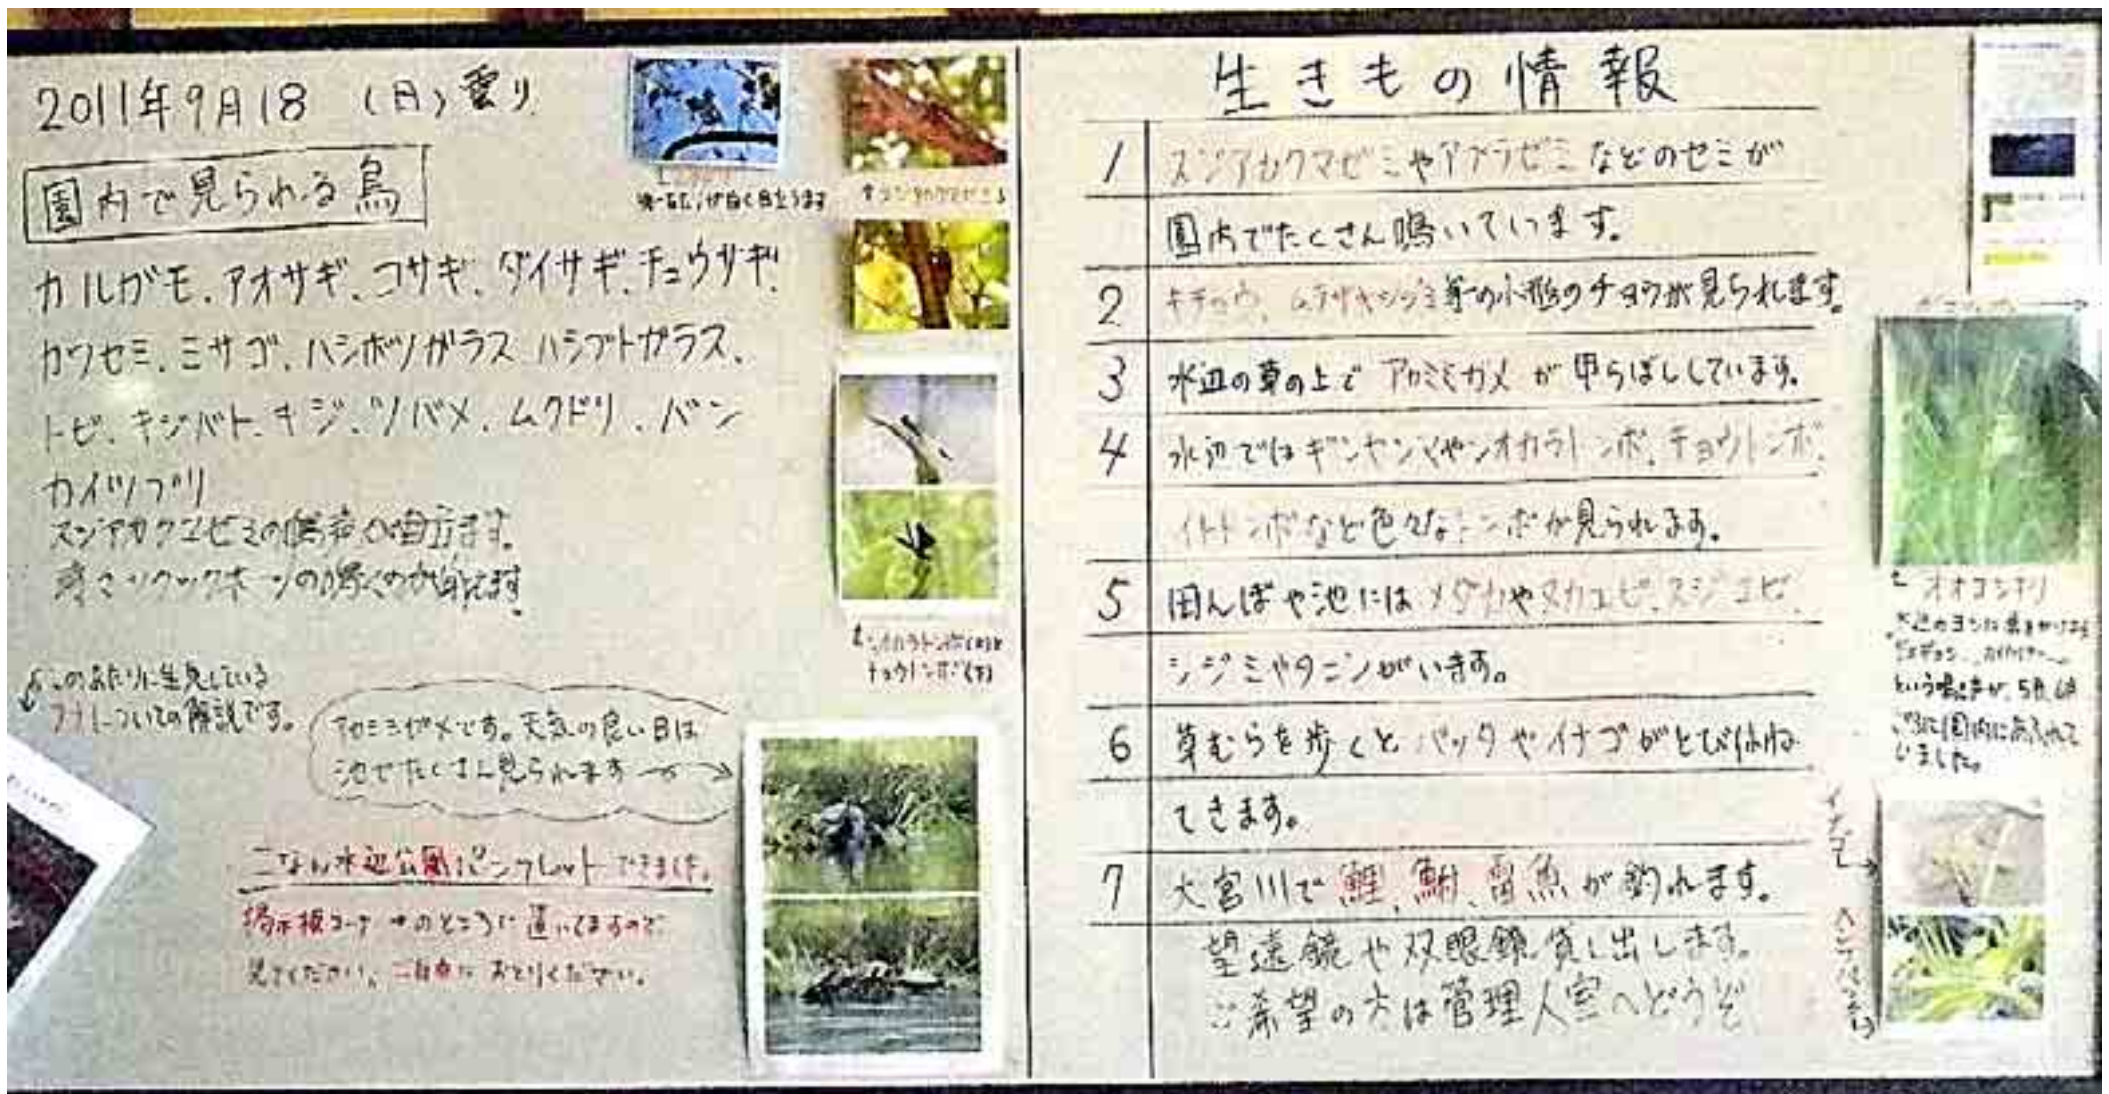 2011年9月18 (日) 雲り
園内で見られる鳥
カルガモ、アオサギ、コサギ、ダイサギ、チュウサギ、
カワセミ、ミサゴ、ハシボソガラス ハシブトガラス、
トビ、キジバト、キジ、ツバメ、ムクドリ、バン
カイツブリ
このあたりに生息している
フナについての解説です。
アカミミガメです。天気の良い日は
池でたくさん見られます
こなん水辺公園パンフレットできました。
掲示板コーナーのところに置いてますので
見てください。ご自由におとりください。
チョウトンボ(下)
生きもの情報
1 スジアカクマゼミやアブラゼミなどのセミが
園内でたくさん鳴いています。
2 キチョウ、ムラサキシジミ等の小形のチョウが見られます。
3 水辺の草の上で アカミミガメ が 甲らぼししています。
4 水辺ではギンヤンマやシオカラトンボ、チョウトンボ、
イトトンボなど色々なトンボが見られます。
5 田んぼや池には メダカやヌカエビ、スジエビ、
シジミやタニシがいます。
6 草むらを歩くと バッタやイナゴがとびはね
てきます。
7 大宮川で 鯉、鮒、雷魚 が釣れます。
望遠鏡や双眼鏡貸し出します。
ご希望の方は管理人室へどうぞ
オオヨシキリ
という鳴き声が、5月、6月
ごろに園内にあふれて
いました。
イナゴ